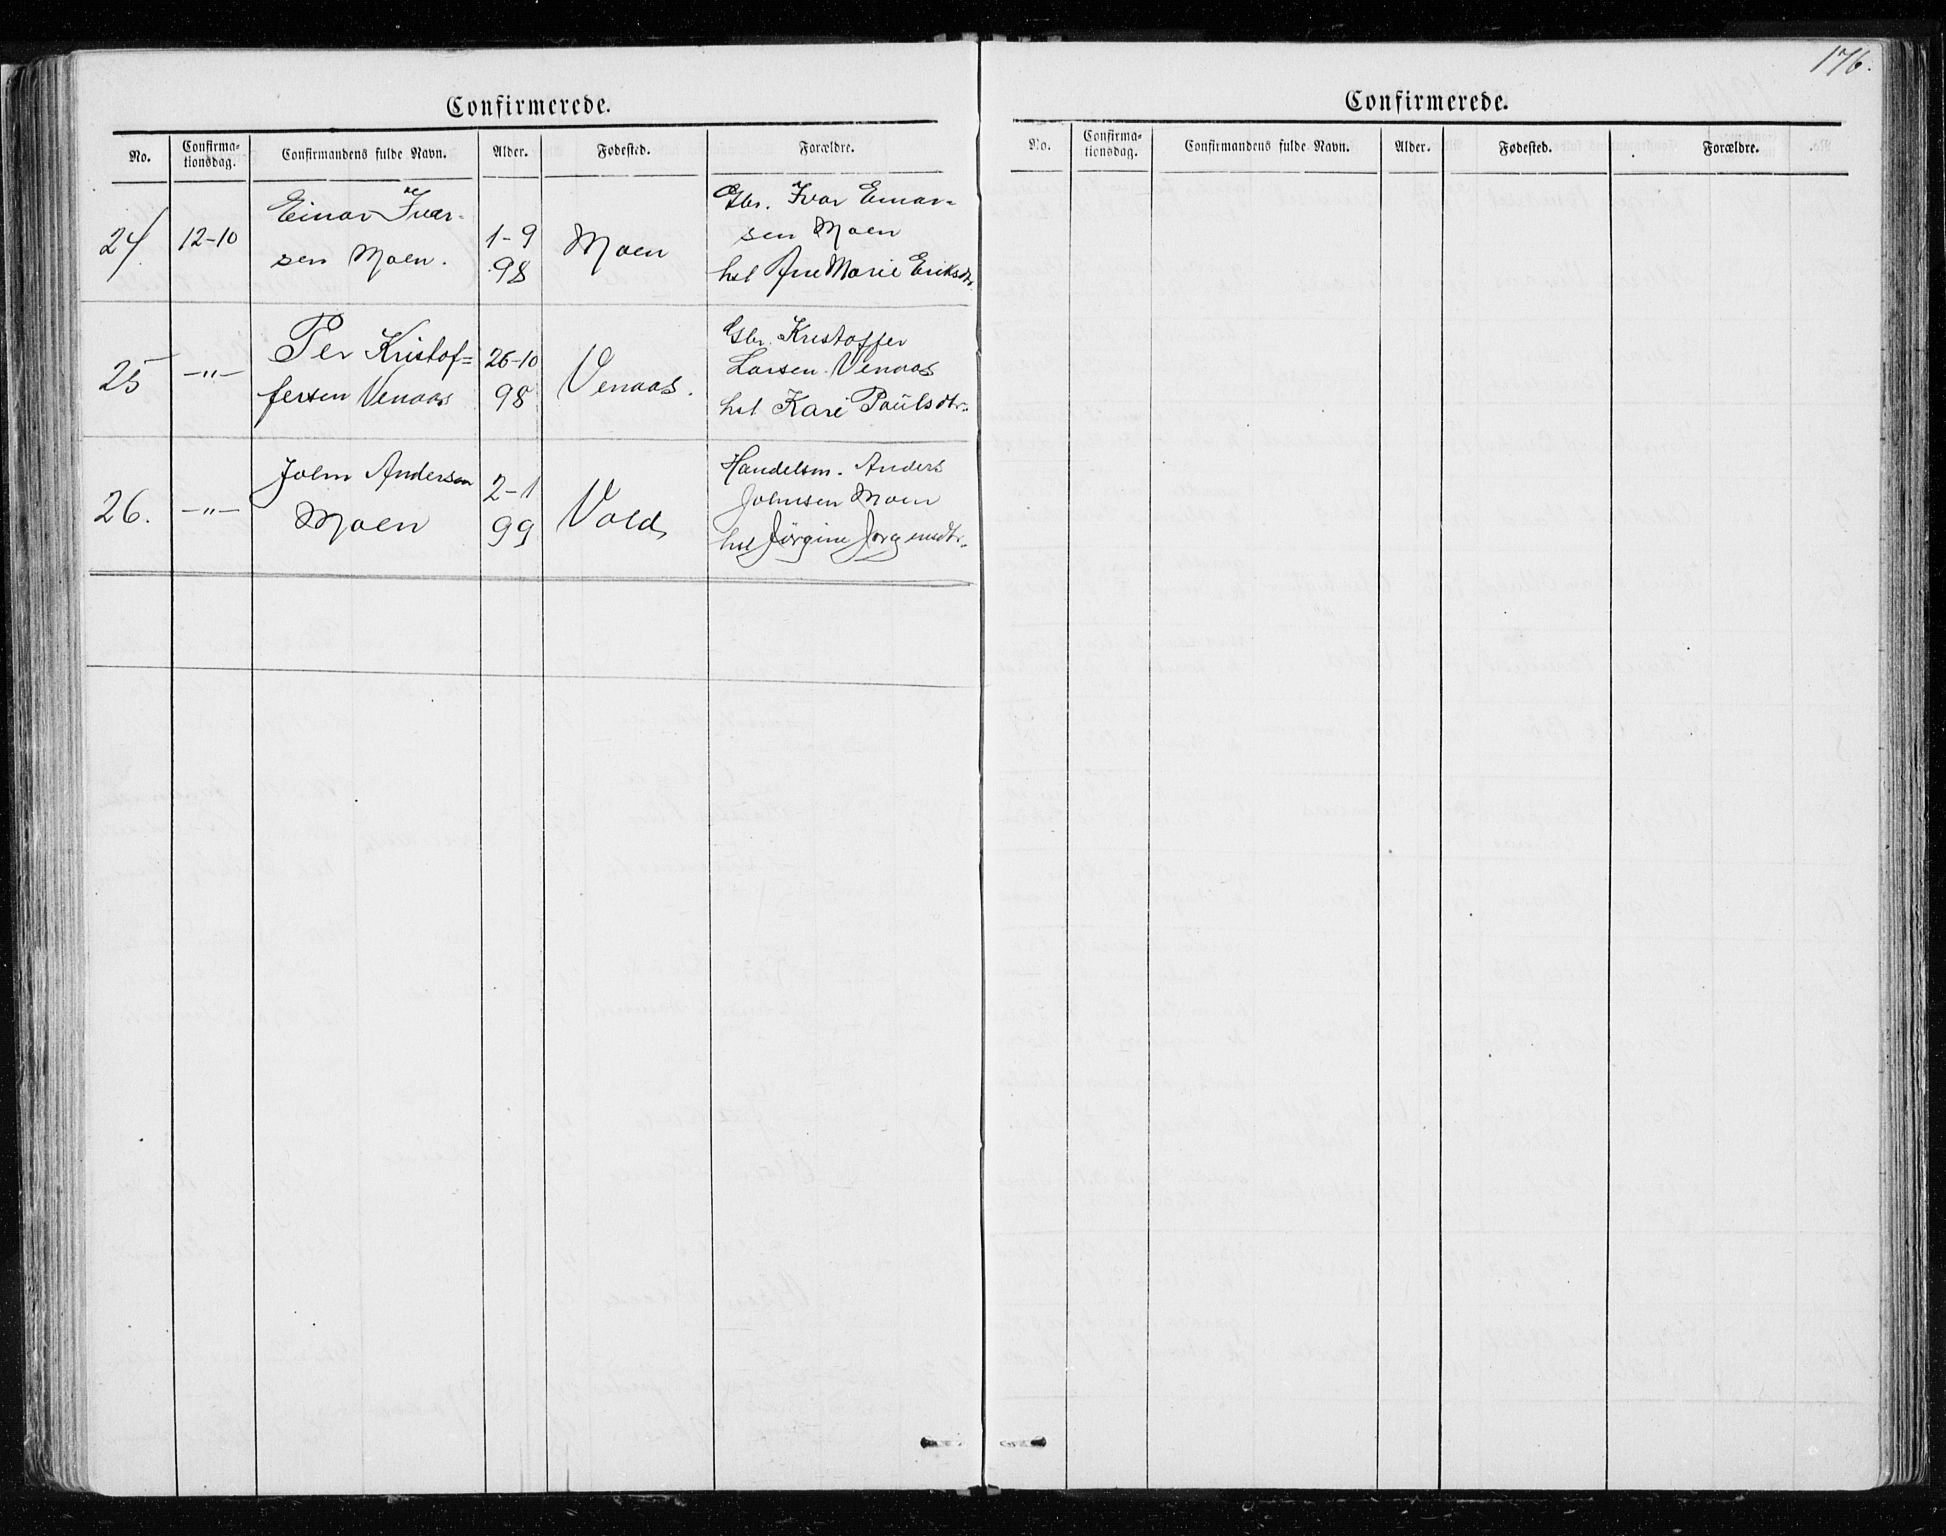 176.
Confirmerede.
No. Confirma-tionsdag. Confirmandens fulde Navn. Alder. Fødested. Forældre.
24. 12-10 Einar Ivar-
sen Moen. 1-9
98 Moen Gbr. Ivar Einar-
sen Moen
hst Ane Marie Eriksdtr.
25 -"- Per Kristof-
fersen Venaas 26-10
98 Venaas. Gbr. Kristoffer
Larsen Venaas
hst Kari Paulsdtr.
26. -"- John Andersen
Moen 2-1
99 Vold Handelsm. Anders
Johnsen Moen
hst Jørgine Jørgensdtr.
Confirmerede.
No. Confirma-tionsdag. Confirmandens fulde Navn. Alder. Fødested. Forældre.